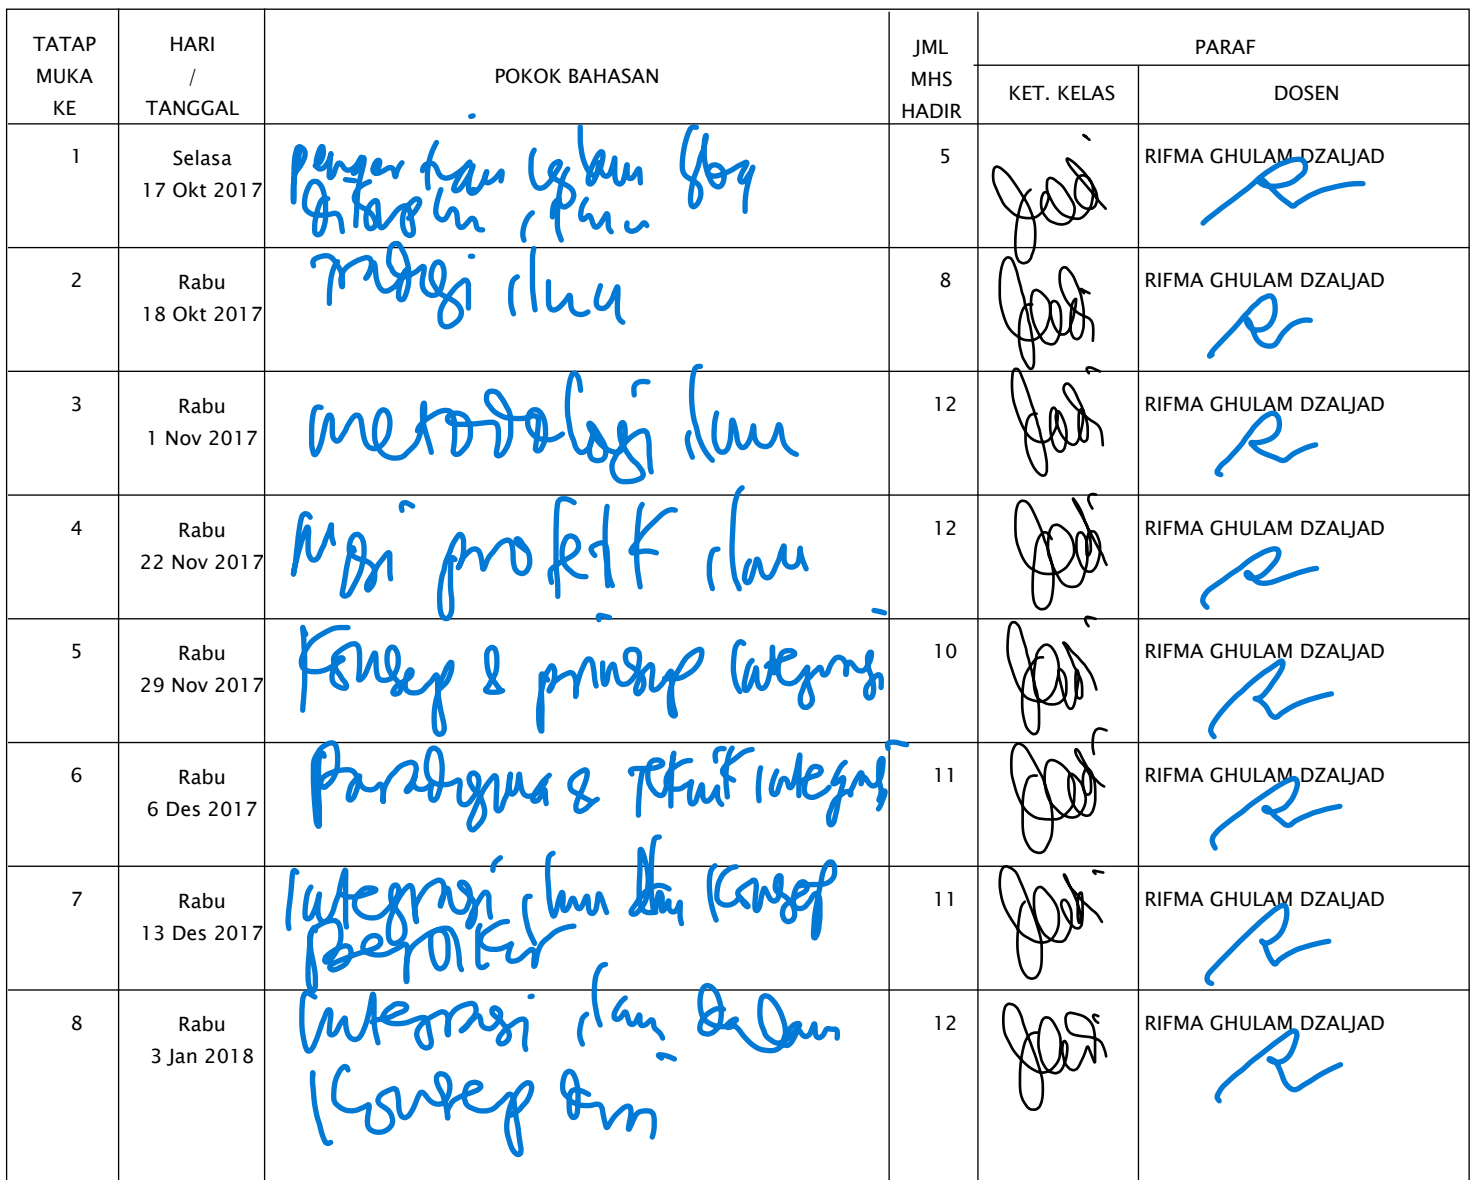 TATAP MUKA KE HARI / TANGGAL POKOK BAHASAN JML MHS HADIR PARAF
KET. KELAS DOSEN
1 Selasa 17 Okt 2017 5 RIFMA GHULAM DZALJAD
2 Rabu 18 Okt 2017 ilmu 8 RIFMA GHULAM DZALJAD
3 Rabu 1 Nov 2017 metodologi ilmu 12 RIFMA GHULAM DZALJAD
4 Rabu 22 Nov 2017 misi profetik ilmu 12 RIFMA GHULAM DZALJAD
5 Rabu 29 Nov 2017 Konsep & prinsip integrasi 10 RIFMA GHULAM DZALJAD
6 Rabu 6 Des 2017 Paradigma & teknik integrasi 11 RIFMA GHULAM DZALJAD
7 Rabu 13 Des 2017 Integrasi ilmu dlm Konsep
Berpikir 11 RIFMA GHULAM DZALJAD
8 Rabu 3 Jan 2018 Integrasi ilmu dalam
Konsep 12 RIFMA GHULAM DZALJAD